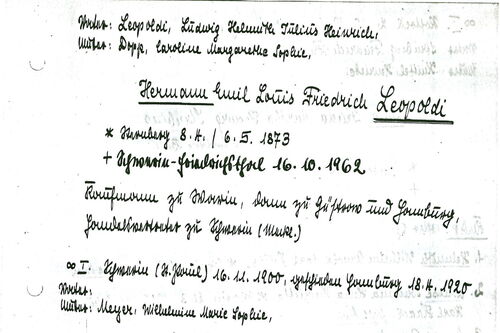 Vater: Leopoldi, Ludwig Helmuth Julius Heinrich,
Mutter: Dopp, Caroline Margaretha Sophie,
Hermann Emil Louis Friedrich Leopoldi
* Sternberg 8.4. / 6.5. 1873
+ Schwerin-Friedrichsthal 16.10.1962
Kaufmann zu Warin, dann zu Güstrow und Hamburg,
Handelsvertreter zu Schwerin (Meckl.)
∞ I. Schwerin (St. Paul) 16.11.1900, geschieden Hamburg 18.4.1920
Vater:
Mutter: Meyer, Wilhelmine Marie Sophie,